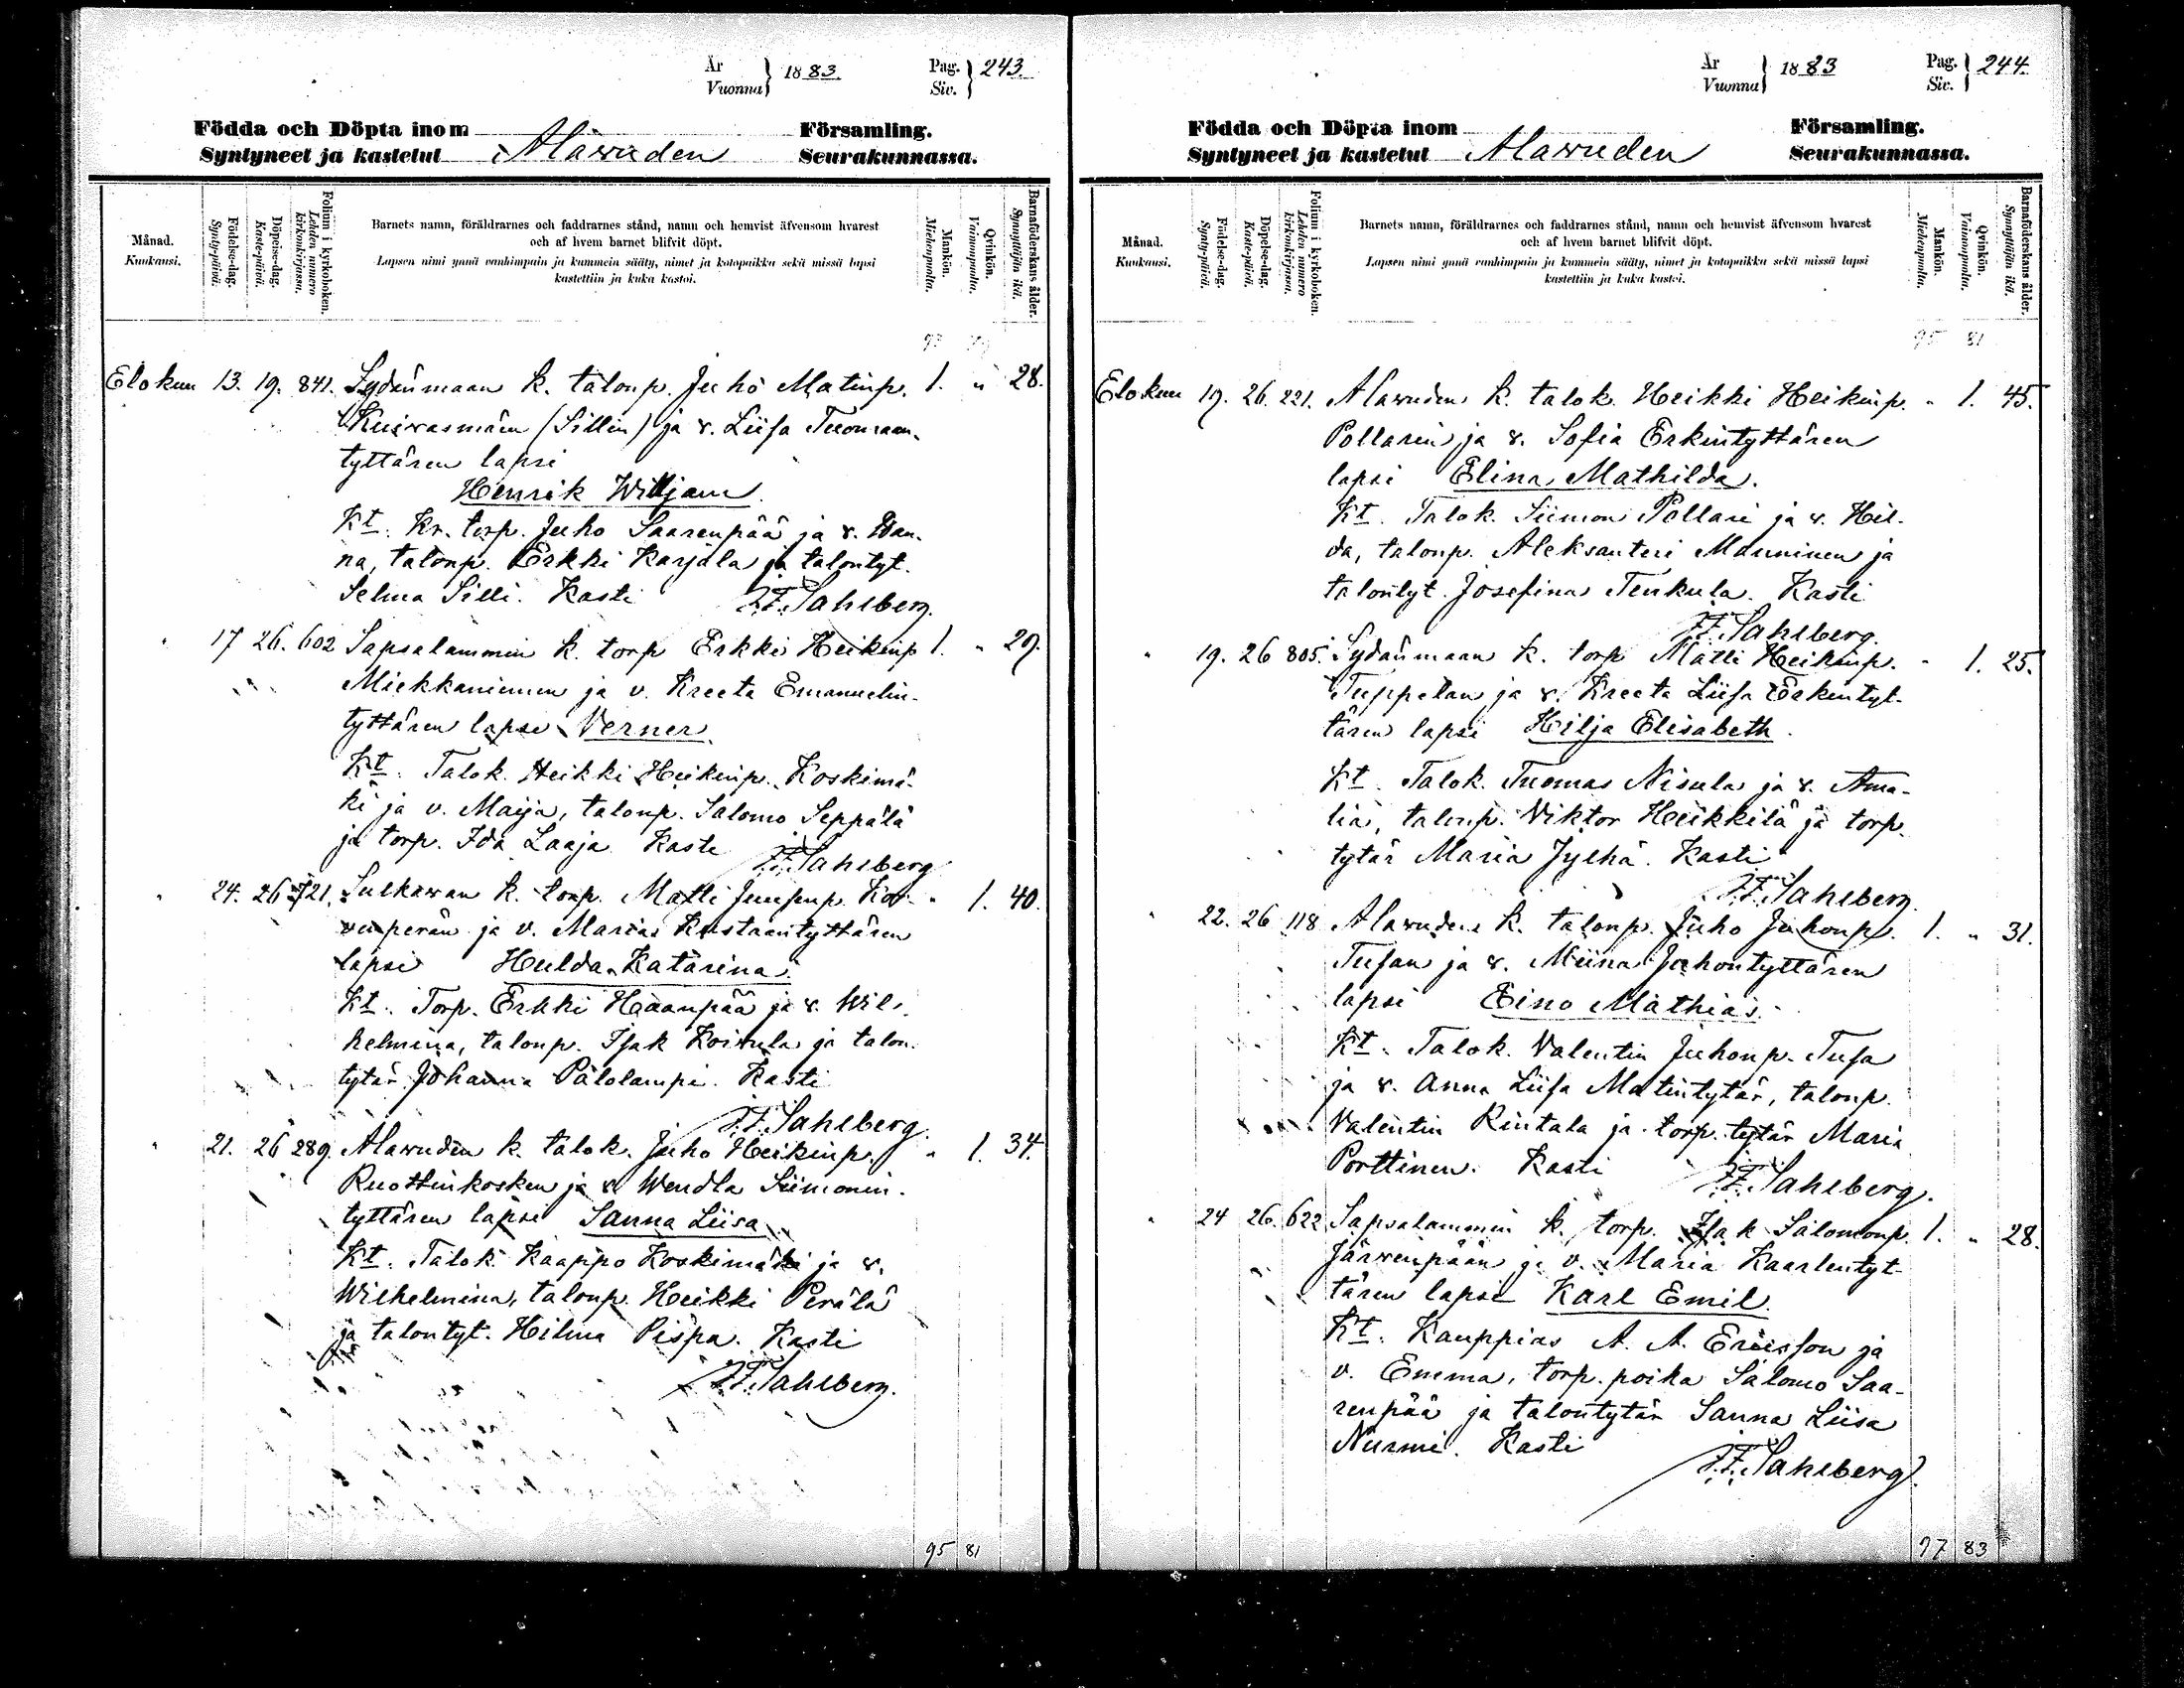 År
Vuonna } 1883. Pag.
Siv. } 243.
Födda och Döpta inom Församling.
Syntyneet ja kastetut Alavuden Seurakunnassa.
Månad.
Kuukausi.
Födelse-dag.
Synty-päivä.
Döpelse-dag.
Kaste-päivä.
Folium i kyrkoboken.
Lehden numero
kirkonkirjassa.
Barnets namn, föräldrarnes och faddrarnes stånd, namn och hemvist äfvensom hvarest
och af hvem barnet blifvit döpt.
Lapsen nimi ynnä vanhimpain ja kummein sääty, nimet ja kotopaikka sekä missä lapsi
kastettiin ja kuka kastoi.
Mankön.
Miehenpuolta.
Qvinkön.
Vaimonpuolta.
Barnaföderskans ålder.
Synnyttäjän ikä.
Elokuu 13. 19. 841. Sydänmaan k. talonp. Juho Matinp. 1. " 28.
Kuivasmäen (Sillin) ja v. Liisa Tuomaan-
tyttären lapsi
Henrik Willjam.
Kt. Kr. torp. Juho Saarenpää ja v. Wan-
na, talonp. Erkki Karjala ja talontyt.
Selma Silli. Kasti J.F. Sahlberg.
" 17 26. 602 Sapsalammin k. torp Erkki Heikinp 1. " 29.
Miekkaniemen ja v. Kreeta Emanuelin-
tyttären lapsi Verner.
Kt. Talok. Heikki Heikinp. Koskimä-
ki ja v. Maija, talonp. Salomo Seppälä
ja torp. Ida Laaja Kasti J.F. Sahlberg
" 24. 26 721. Sulkavan k. torp. Matti Juusenp. Kor- " 1. 40.
venperän ja v. Marian Kustaantyttären
lapsi Hulda Katarina.
Kt. Torp. Erkki Haanpää ja v. Wil-
helmina, talonp. Isak Koivula ja talon-
tytär Johanna Pälolampi. Kasti
J.F. Sahlberg.
" 21. 26 289. Alavuden k. talok. Juho Heikinp. " 1. 34.
Ruottinkosken ja v. Wendla Siimonin-
tyttären lapsi Sanna Liisa
Kt. Talok. Kaappo Koskimäki ja v.
Wilhelmina, talonp. Heikki Perälä
ja talontyt. Hilma Pispa. Kasti
J.F. Sahlberg.
95 81
År
Vuonna } 1883 Pag.
Siv. } 244.
Födda och Döpta inom Församling.
Syntyneet ja kastetut Alavuden Seurakunnassa.
Månad.
Kuukausi.
Födelse-dag.
Synty-päivä.
Döpelse-dag.
Kaste-päivä.
Folium i kyrkoboken.
Lehden numero
kirkonkirjassa.
Barnets namn, föräldrarnes och faddrarnes stånd, namn och hemvist äfvensom hvarest
och af hvem barnet blifvit döpt.
Lapsen nimi ynnä vanhimpain ja kummein sääty, nimet ja kotopaikka sekä missä lapsi
kastettiin ja kuka kastoi.
Mankön.
Miehenpuolta.
Qvinkön.
Vaimonpuolta.
Barnaföderskans ålder.
Synnyttäjän ikä.
95 81
Elokuu 19. 26. 221. Alavuden k. talok. Heikki Heikinp. " 1. 45.
Pollarin ja v. Sofia Erkintyttären
lapsi Elina Mathilda.
Kt. Talok. Siimon Pollari ja v. Hil-
da, talonp. Aleksanteri Manninen ja
talontyt. Josefina Teukula. Kasti
J.F. Sahlberg.
" 19. 26 805. Sydänmaan k. torp Matti Heikinp. " 1. 25.
Tuppelan ja v. Kreeta Liisa Erkintyt-
tären lapsi Hilja Elisabeth.
Kt. Talok. Tuomas Nisula ja v. Ama-
lia, talonp. Viktor Heikkilä ja torp.
tytär Maria Jylhä. Kasti
J.F. Sahlberg.
" 22. 26 118 Alavuden k. talonp. Juho Juhonp. 1. " 31.
Tusan ja v. Miina Juhontyttären
lapsi Eino Mathias.
Kt. Talok. Valentin Juhonp. Tusa
ja v. Anna Liisa Matintytär, talonp.
Valentin Rintala ja torp. tytär Maria
Porttinen. Kasti J.F. Sahlberg.
" 24 26. 622 Sapsalammin k. torp. Isak Salomonp. 1. " 28.
Järvenpään ja v. Maria Kaarlentyt-
tären lapsi Karl Emil.
Kt. Kauppias A. A. Ericsson ja
v. Emma, torp. poika Salomo Saa-
renpää ja talontytär Sanna Liisa
Nurmi. Kasti
J.F. Sahlberg.
97 83